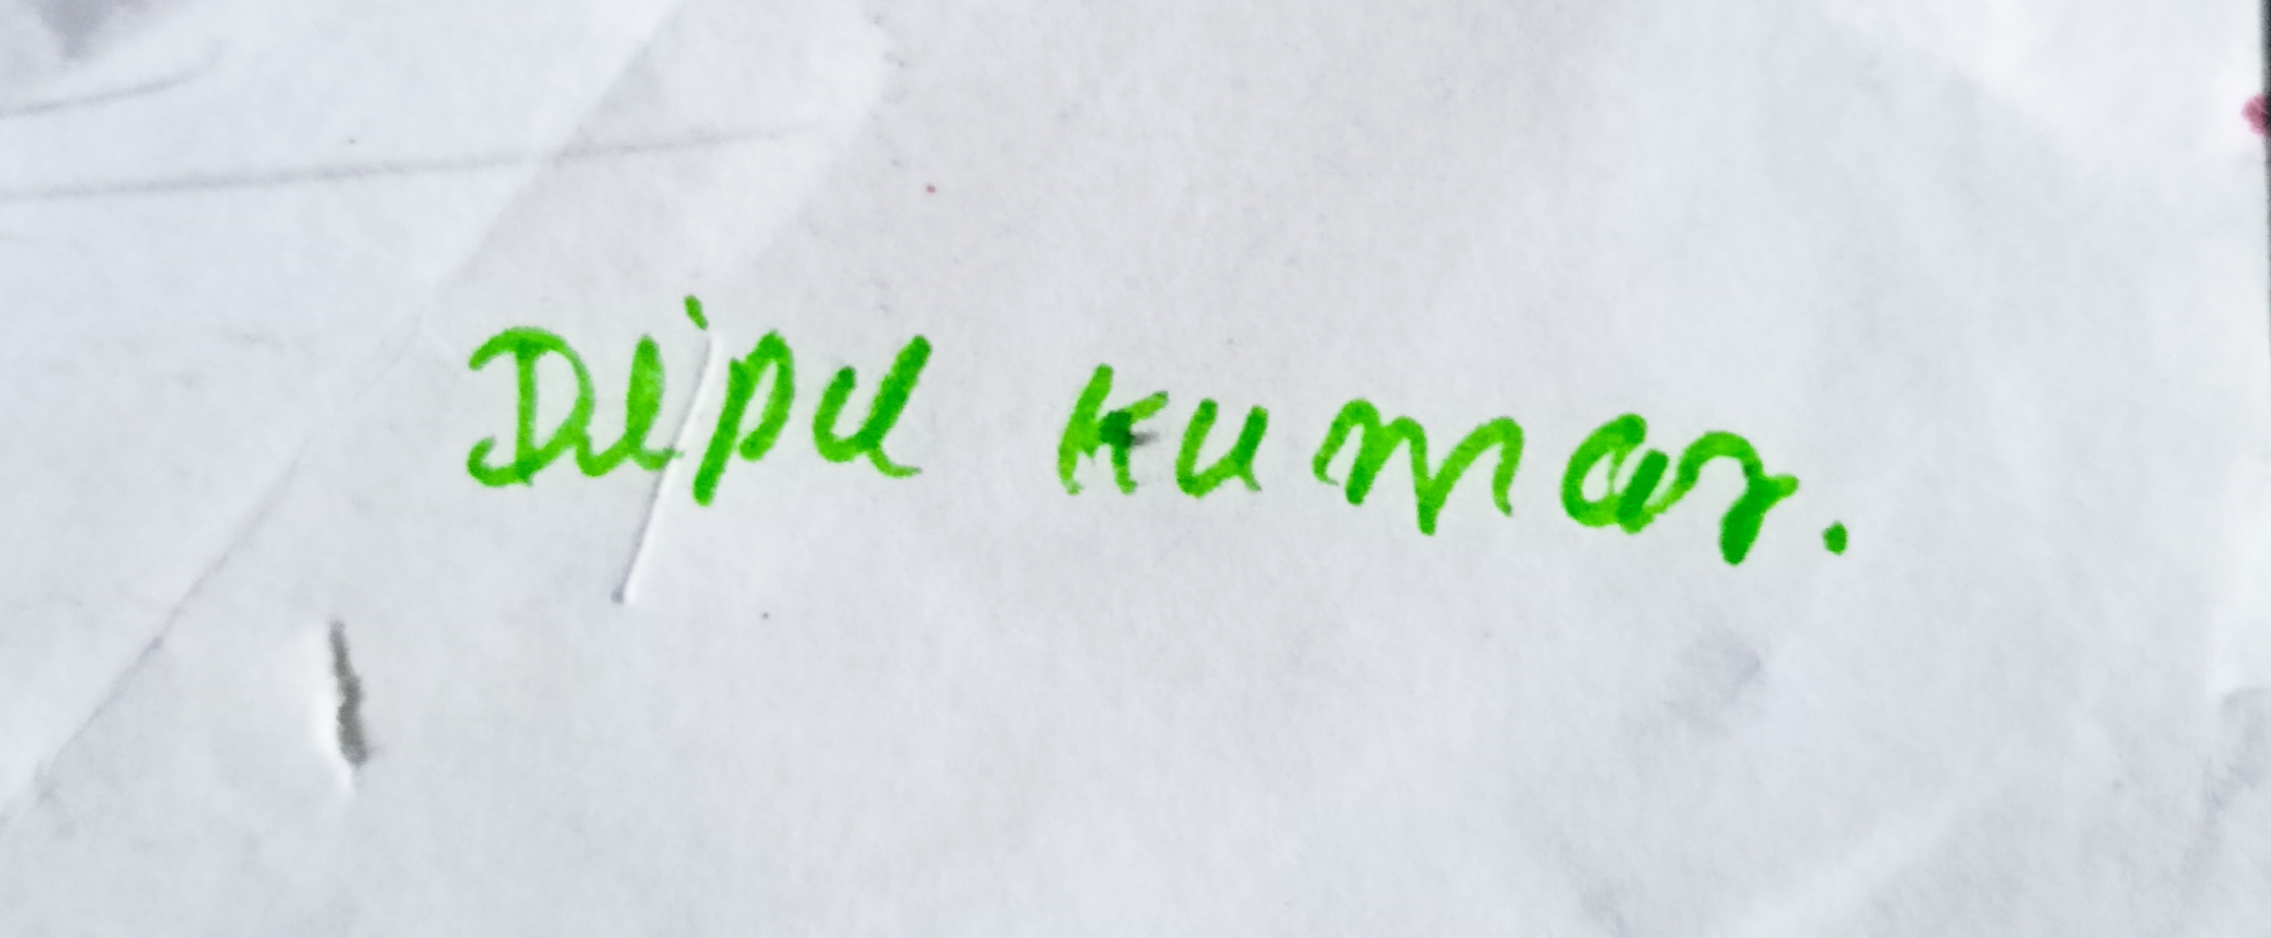 Dipu Kumar.